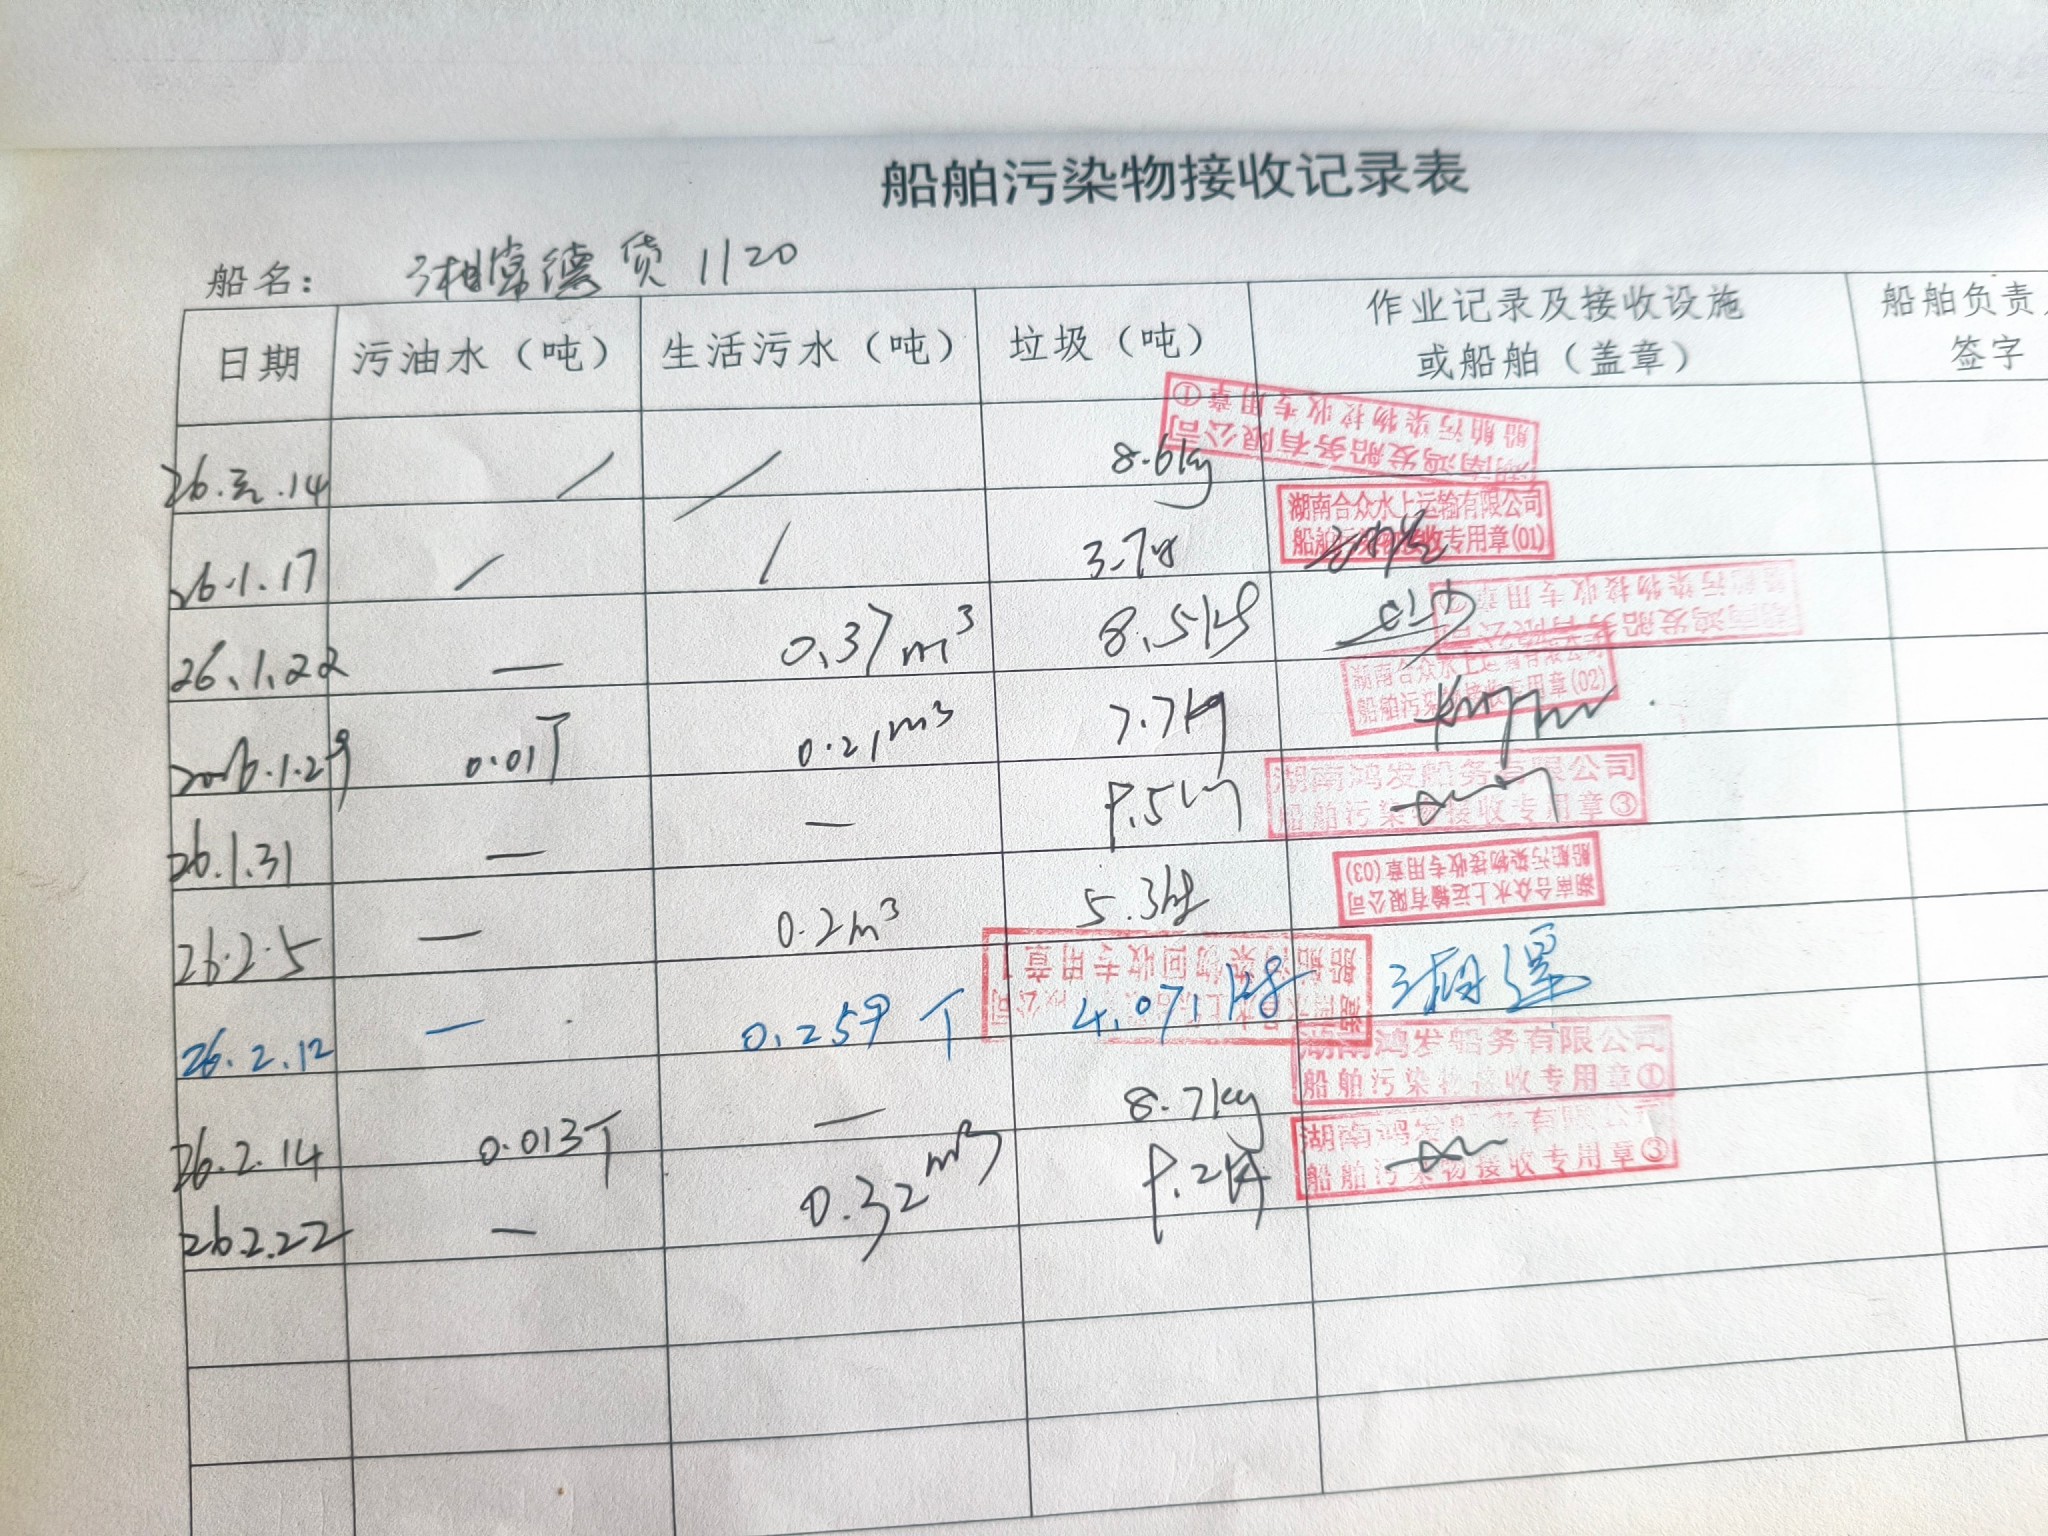 船舶污染物接收记录表
船名： 湘常德货1120
日期 污油水（吨） 生活污水（吨） 垃圾（吨） 作业记录及接收设施或船舶（盖章） 船舶负责 签字
14 / / 8.6kg 湖南鸿发船务有限公司 船舶污染物接收专用章①
26.1.17 / / 3.7 湖南合众水上运输有限公司 船舶污染物接收专用章(01)
26.1.22 — 0.37m³ 8.5kg 湖南鸿发船务有限公司 船舶污染物接收专用章
2026.1.29 0.01T 0.21m³ 7.7kg 湖南合众水上运输有限公司 船舶污染物接收专用章(02)
26.1.31 — — 9.5kg 湖南鸿发船务有限公司 船舶污染物接收专用章③
26.2.5 — 0.2m³ 5.3kg 湖南合众水上运输有限公司 船舶污染物接收专用章(03)
26.2.12 — 0.259T 4.071kg 船舶污染物回收专用章
26.2.14 0.013T — 8.7kg 湖南鸿发船务有限公司 船舶污染物接收专用章①
26.2.22 — 0.32m³ 9.2kg 湖南鸿发船务有限公司 船舶污染物接收专用章③